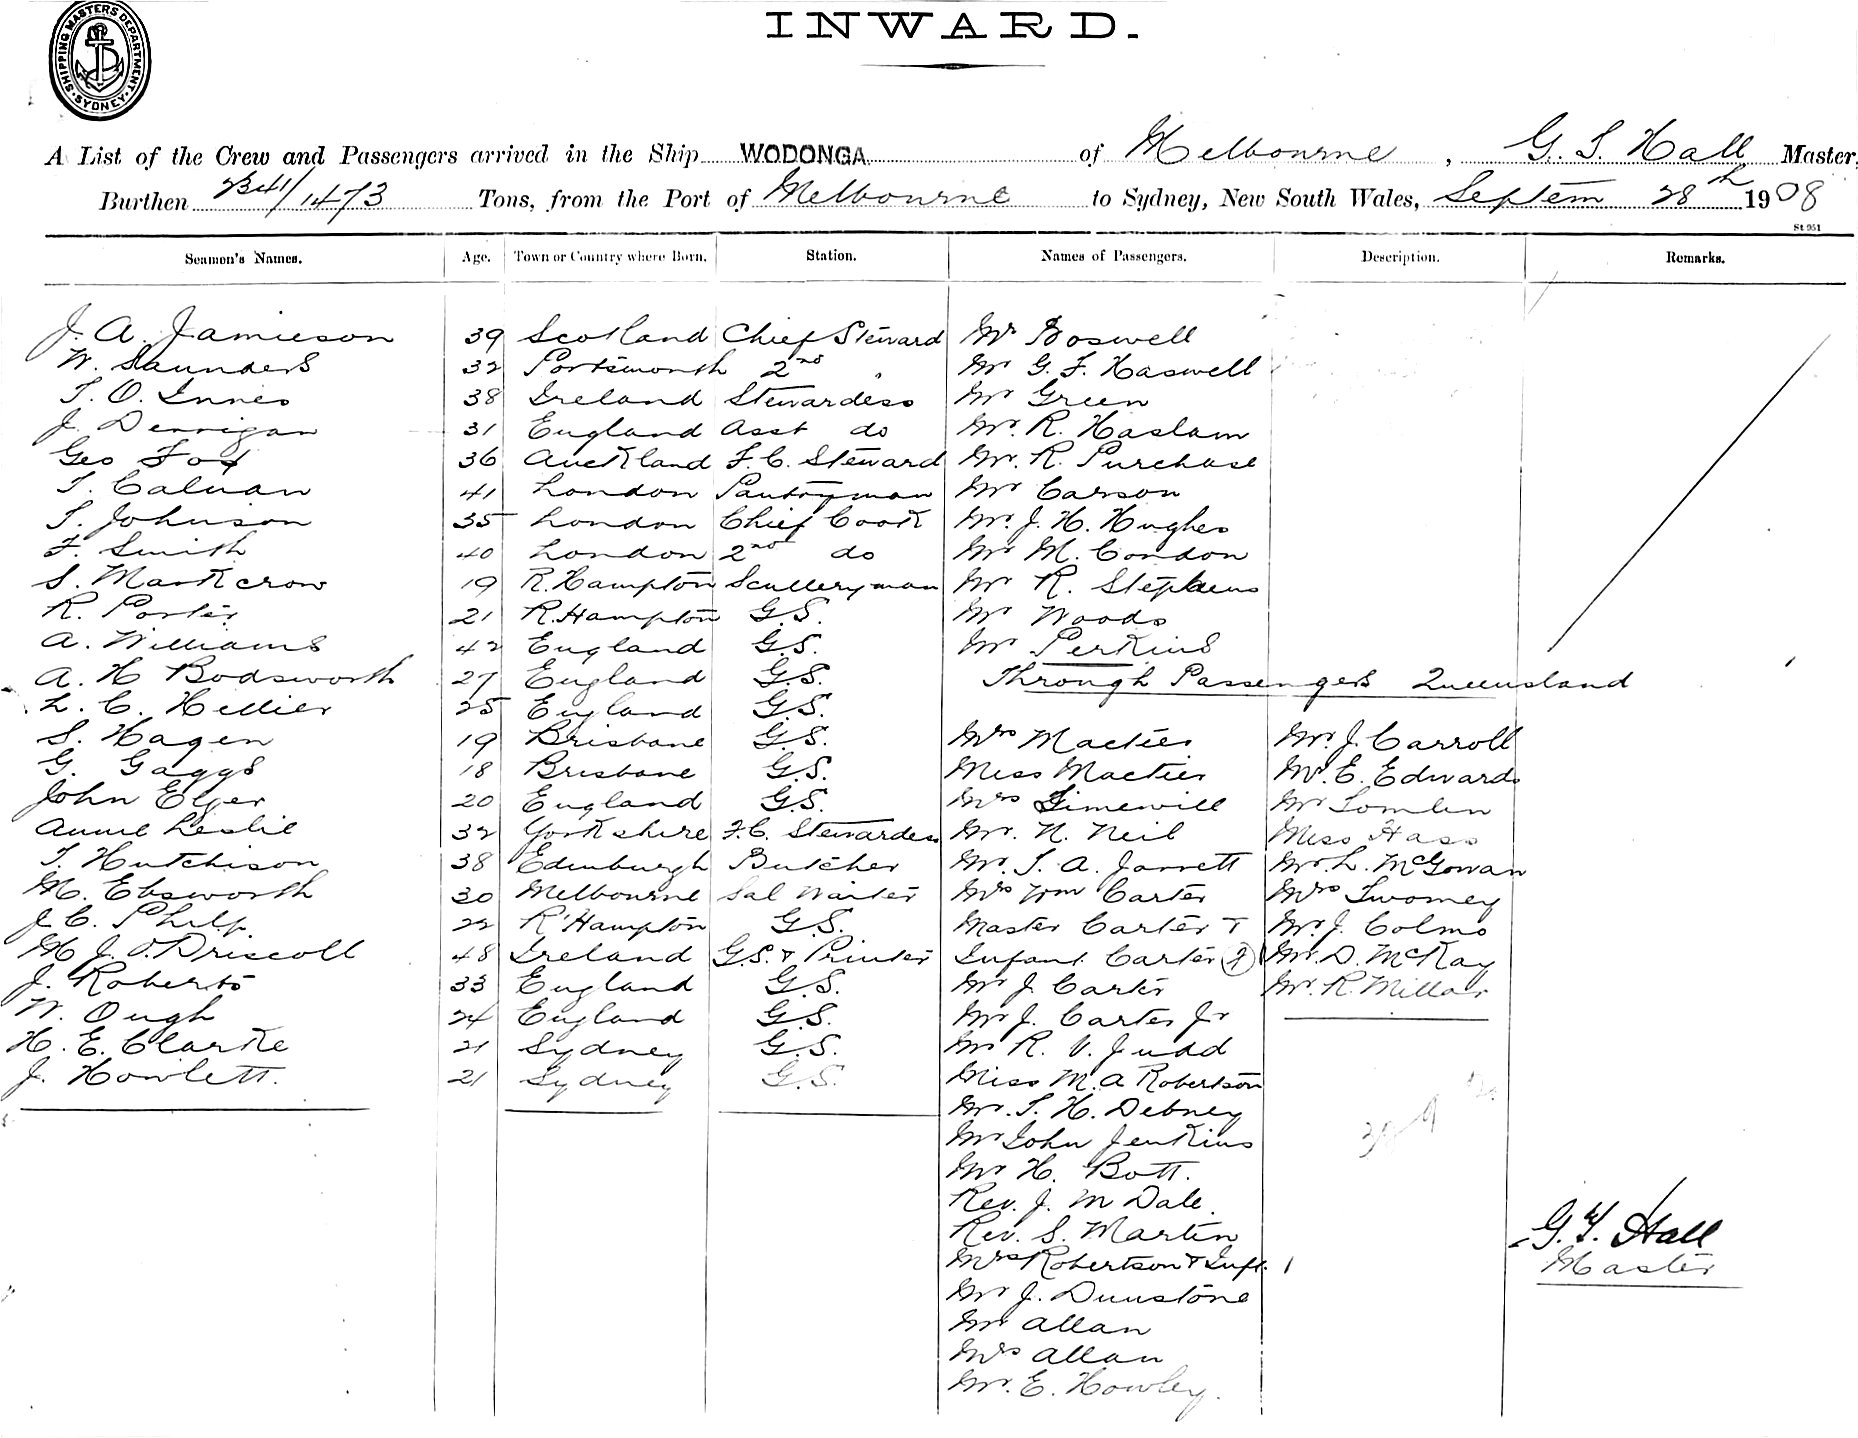 INWARD.
SHIPPING MASTERS DEPARTMENT. SYDNEY
A List of the Crew and Passengers arrived in the Ship WODONGA of Melbourne, G. S. Hall Master,
Burthen 2341/1473 Tons, from the Port of Melbourne to Sydney, New South Wales, Septem 28th 1908
St 951
Seamen's Names. Age. Town or Country where Born. Station. Names of Passengers. Description. Remarks.
J. A. Jamieson 39 Scotland Chief Steward Mr Boswell
W. Saunders 32 Portsmouth 2nd " Mr G. F. Haswell
T. O. Innes 38 Ireland Stewardess Mr Green
J. Derrigan 31 England Asst do Mr. R. Haslam
Geo Fox 36 Auckland F. C. Steward Mr. R. Purchase
T. Calnan 41 London Pantryman Mr Carson
T. Johnson 35 London Chief Cook Mr. J. H. Hughes
F. Smith 40 London 2nd do Mr M. Condon
S. Markcrow 19 R. Hampton Sculleryman Mr R. Stephens
R. Porter 21 R. Hampton G.S. Mr Woods
A. Williams 42 England G.S. Mr Perkins
A. H Bodsworth 27 England G.S. Through Passengers Queensland
L. C. Hellier 25 England G.S.
S. Hagen 19 Brisbane G.S. Mrs Mactier Mr. J. Carroll
G. Gaggs 18 Brisbane G.S. Miss Mactier Mr. E. Edwards
John Elger 20 England G.S. Mrs Mr Tomlin
Annie Leslie 32 Yorkshire F.C. Stewardess Mr. N. Neil Miss Hass
T. Hutchison 38 Edinburgh Butcher Mr. T. A. Jarrett Mr. L. McGowan
M. Ebsworth 30 Melbourne Sal Waiter Mrs Wm Carter Mrs Twomey
J. C. Philp. 22 R'Hampton G.S. Master Carter + Mr. J. Colmo
M J. O.Driscoll 48 Ireland G.S. + Printer Infant Carter (2) Mr. D. McKay
J. Roberts 33 England G.S. Mr J. Carter Mr. R. Millar
W. Ough 24 England G.S. Mr J. Carter Jr
H. E. Clarke 21 Sydney G.S. Mr R. V. Judd
J. Howlett. 21 Sydney G.S. Miss M. A Robertson
Mr. T. H. Debney
Mr John Jenkins
Mr H. Bott.
Rev. J. M Dale.
Rev. S. Martin
Mrs Robertson + Inft. 1
Mr J. Dunstone
Mr Allan
Mrs Allan
Mr. E. Howley.
G. S. Hall
Master